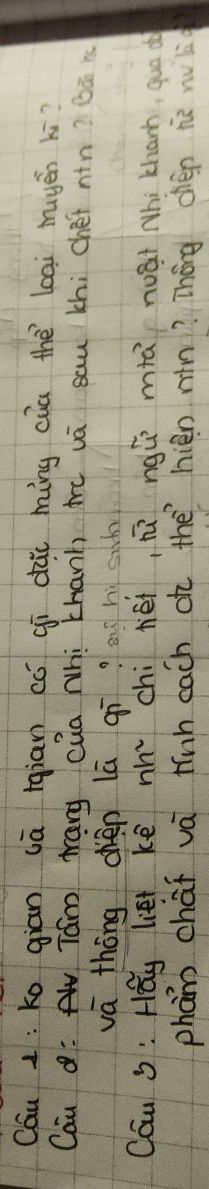 Câu 1: Ko gian và tgian có gì đặc trưng của thể loại truyền kì?
Câu 2: Tâm trạng của Nhị Khanh trc và sau khi chết ntn? Bài
và thông điệp là gì? sự hi sinh
Câu 3: Hãy liệt kê nh~ chi tiết, từ ngữ mtả nvật Nhị Khanh, qua đó
phẩm chất và tính cách đc thể hiện ntn? Thông điệp từ nv là gì?